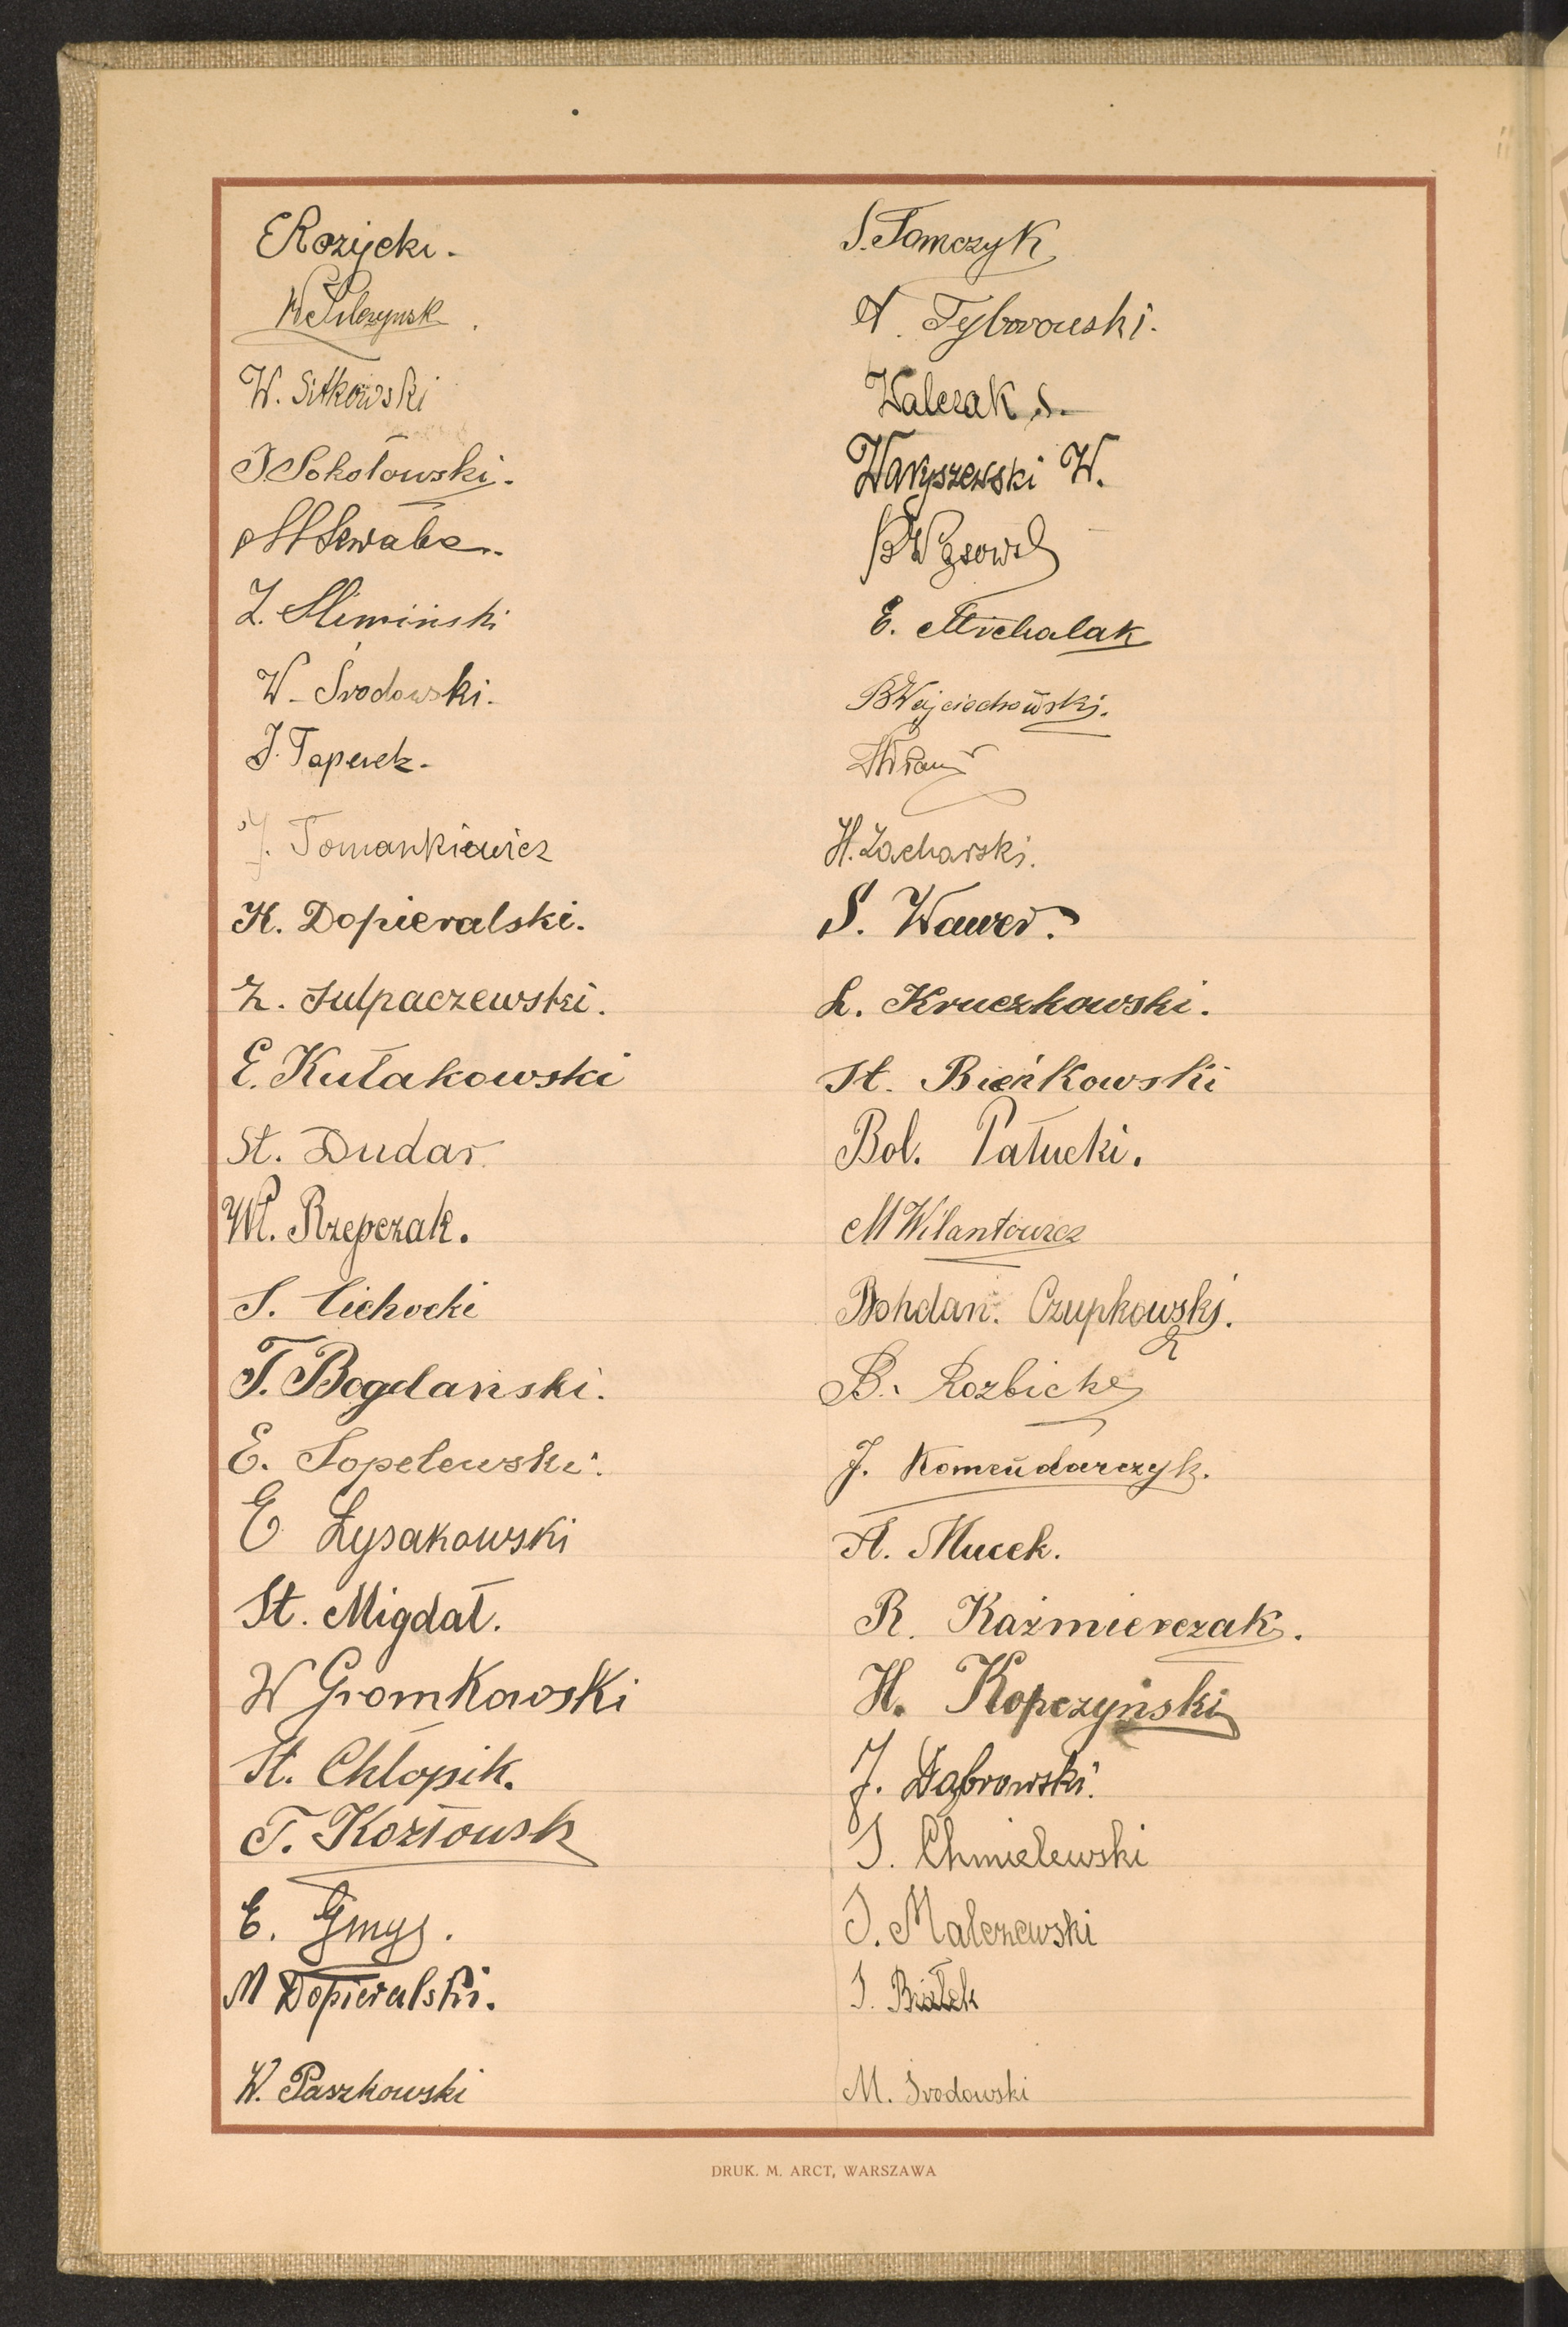 E Rozycki.
W. Sitkowski
J Sokołowski.
M Szwabe.
Z. Śliwiński
W. Środowski.
J. Taperek.
J. Tomankiewicz
K. Dopieralski.
Z. Sulpaczewski.
E. Kułakowski
St. Dudar.
Wł. Rzepczak.
S. Cichocki
T. Bogdański.
E. Sopelewski.
E Łysakowski
St. Migdał.
W Gromkowski
St. Chłopik.
T. Kozłowsk
E. Gmyz.
M Dopieralski.
W. Paszkowski
S. Tomczyk
A. Tyborowski.
Walczak S.
Waryszewski W.
B Wąsowsk
E. Michalak
B Wojciechowski.
H. Zacharski.
S. Wawer.
L. Kruczkowski.
St. Bieńkowski
Bol. Pałucki.
M Wilantowicz
Bohdan. Czupkowski.
B. Rozbicki
J. Komendarczyk.
A. Mucek.
R. Kaźmierczak.
H. Kopczyński
J. Dąbrowski.
J. Chmielewski
J. Malczewski
J. Białek
M. Środowski
DRUK. M. ARCT, WARSZAWA